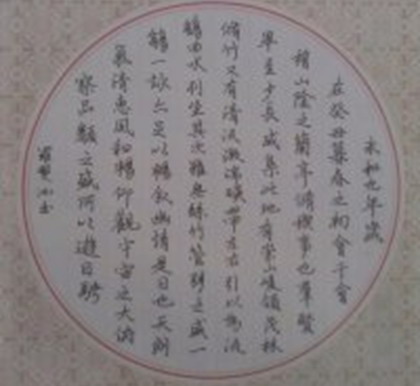 永和九年歲
在癸丑暮春之初會于會
稽山陰之蘭亭脩禊事也羣賢
畢至少長咸集此地有崇山峻領茂林
脩竹又有清流激湍暎帶左右引以為流
觴曲水列坐其次雖無絲竹管弦之盛一
觴一詠亦足以暢敘幽情是日也天朗
氣清惠風和暢仰觀宇宙之大俯
察品類之盛所以遊目騁